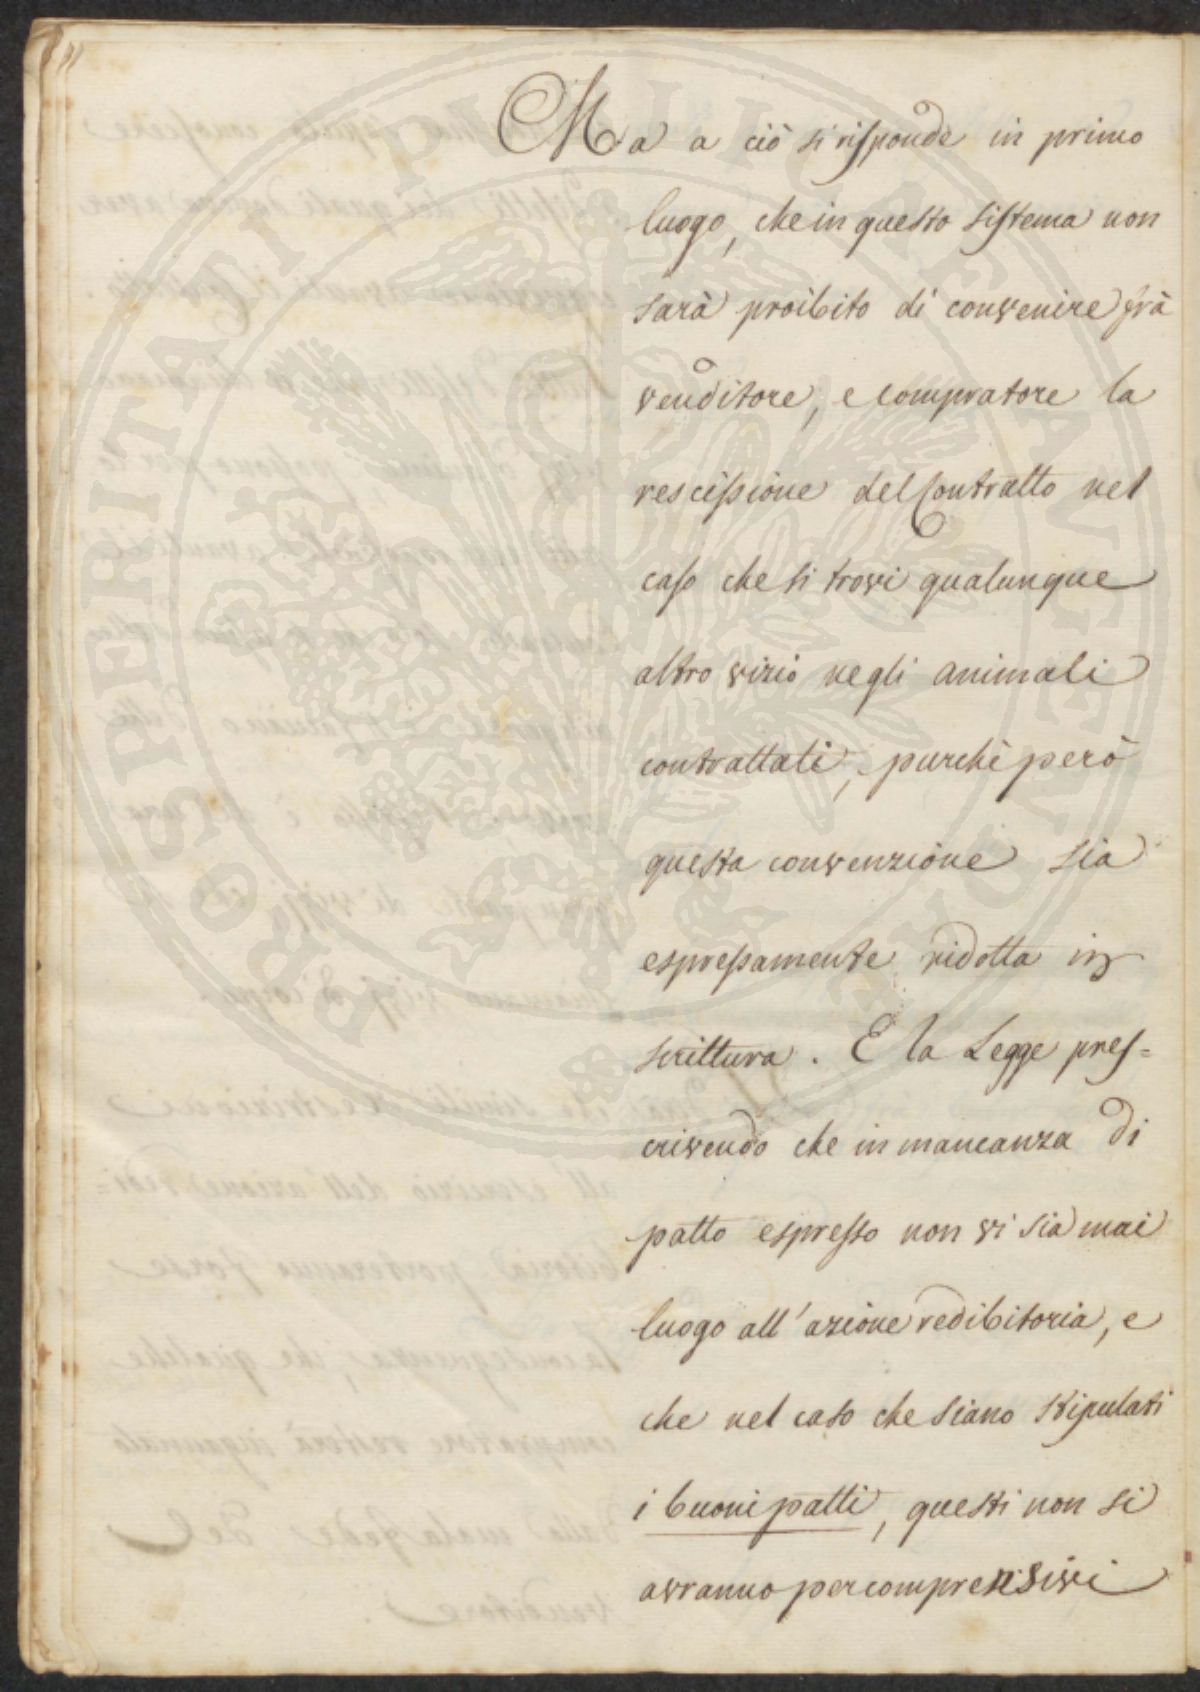 Ma a ciò si risponde in primo
luogo, che in questo sistema non
sarà proibito di convenire frà
venditore, e compratore la
rescissione del Contratto nel
caso che si trovi qualunque
altro vizio negli animali
contrattati, purchè però
questa convenzione sia
espressamente ridotta in
scrittura. E la Legge pres=
crivendo che in mancanza di
patto espresso non vi sia mai
luogo all'azione redibitoria, e
che nel caso che siano stipulati
i buoni patti, questi non si
avranno per comprensivi
PROSPERITATI PUBLICAE AUGENDAE